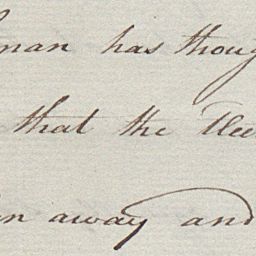 man has thoug
that the Flee
n away and